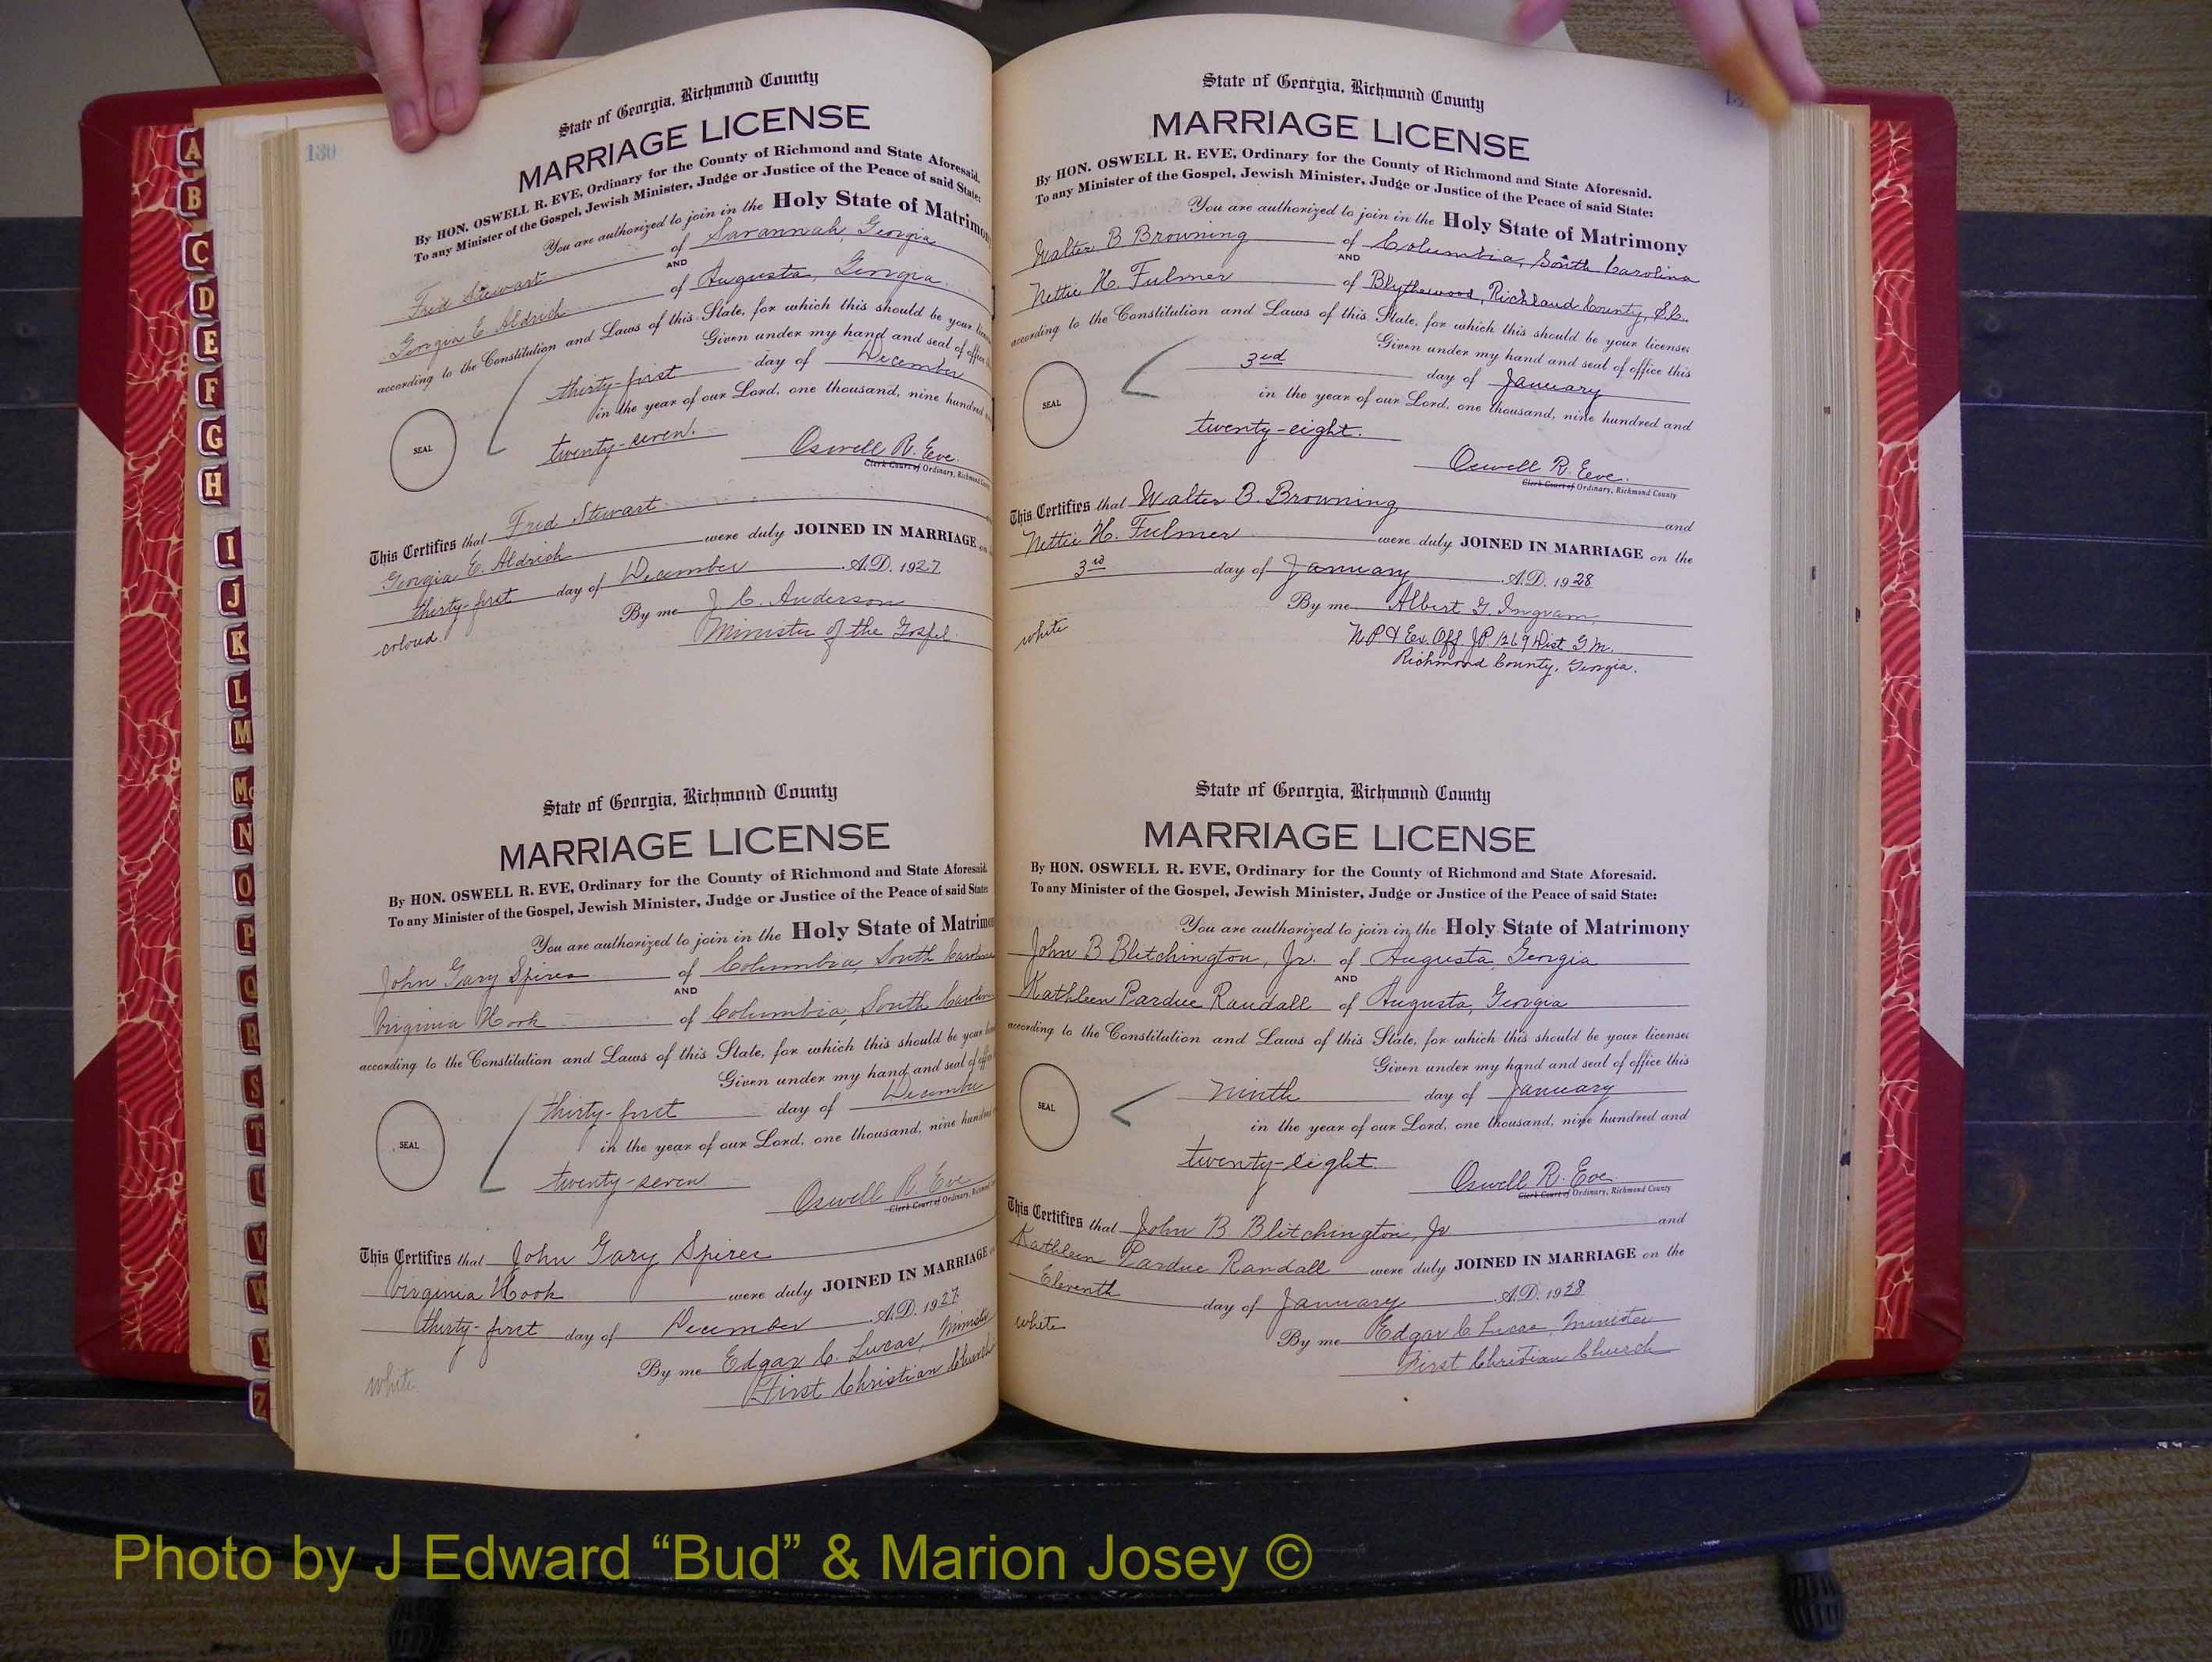 A
B
C
D
E
F
G
H
I
J
K
L
M
Mc
N
O
P
Q
R
S
T
U
V
W
Y
Z
130
State of Georgia, Richmond County
MARRIAGE LICENSE
By HON. OSWELL R. EVE, Ordinary for the County of Richmond and State Aforesaid.
To any Minister of the Gospel, Jewish Minister, Judge or Justice of the Peace of said State:
You are authorized to join in the Holy State of Matrimon
Fred Stewart of Savannah, Georgia
AND
Georgia E. Aldrich of Augusta, Georgia
according to the Constitution and Laws of this State, for which this should be your
Given under my hand and seal of office
thirty-first day of December
in the year of our Lord, one thousand, nine hundred
SEAL
twenty-seven.
Oswell R. Eve.
Clerk Court of Ordinary, Richmond County
This Certifies that Fred Stewart
Georgia E. Aldrich were duly JOINED IN MARRIAGE
thirty-first day of December A.D. 1927
By me J. C. Anderson
colored. Minister of the Gospel
State of Georgia, Richmond County
MARRIAGE LICENSE
By HON. OSWELL R. EVE, Ordinary for the County of Richmond and State Aforesaid.
To any Minister of the Gospel, Jewish Minister, Judge or Justice of the Peace of said State:
You are authorized to join in the Holy State of Matrimon
John Gary Spires of Columbia, South Carolina
AND
Virginia Hook of Columbia, South Carolin
according to the Constitution and Laws of this State, for which this should be your
Given under my hand and seal of
thirty-first day of December
in the year of our Lord, one thousand, nine hundred
SEAL
twenty-seven
Oswell R. Eve
Clerk Court of Ordinary, Richmond
This Certifies that John Gary Spires
Virginia Hook were duly JOINED IN MARRIAGE
thirty-first day of December A.D. 1927
By me Edgar C. Lucas, Minister
white First Christian Church
State of Georgia, Richmond County
MARRIAGE LICENSE
By HON. OSWELL R. EVE, Ordinary for the County of Richmond and State Aforesaid.
To any Minister of the Gospel, Jewish Minister, Judge or Justice of the Peace of said State:
You are authorized to join in the Holy State of Matrimony
Walter B Browning of Columbia, South Carolina
AND
Nettie H. Fulmer of Blythewood, Richland County, S.C.
according to the Constitution and Laws of this State, for which this should be your license:
Given under my hand and seal of office this
3rd day of January
SEAL
in the year of our Lord, one thousand, nine hundred and
twenty-eight.
Oswell R. Eve.
Clerk Court of Ordinary, Richmond County
This Certifies that Walter B. Browning and
Nettie H. Fulmer were duly JOINED IN MARRIAGE on the
3rd day of January A.D. 1928
By me Albert G. Ingram,
white N.P. & Ex. Off. J.P. 1269 Dist G.M.
Richmond County, Georgia.
State of Georgia, Richmond County
MARRIAGE LICENSE
By HON. OSWELL R. EVE, Ordinary for the County of Richmond and State Aforesaid.
To any Minister of the Gospel, Jewish Minister, Judge or Justice of the Peace of said State:
You are authorized to join in the Holy State of Matrimony
John B Blitchington, Jr. of Augusta, Georgia
AND
Kathleen Pardue Randall of Augusta, Georgia
according to the Constitution and Laws of this State, for which this should be your license:
Given under my hand and seal of office this
ninth day of January
SEAL
in the year of our Lord, one thousand, nine hundred and
twenty-eight.
Oswell R. Eve.
Clerk Court of Ordinary, Richmond County
This Certifies that John B Blitchington, Jr and
Kathleen Pardue Randall were duly JOINED IN MARRIAGE on the
Eleventh day of January A.D. 1928
white By me Edgar C Lucas, Minister
First Christian Church
Photo by J Edward “Bud” & Marion Josey ©